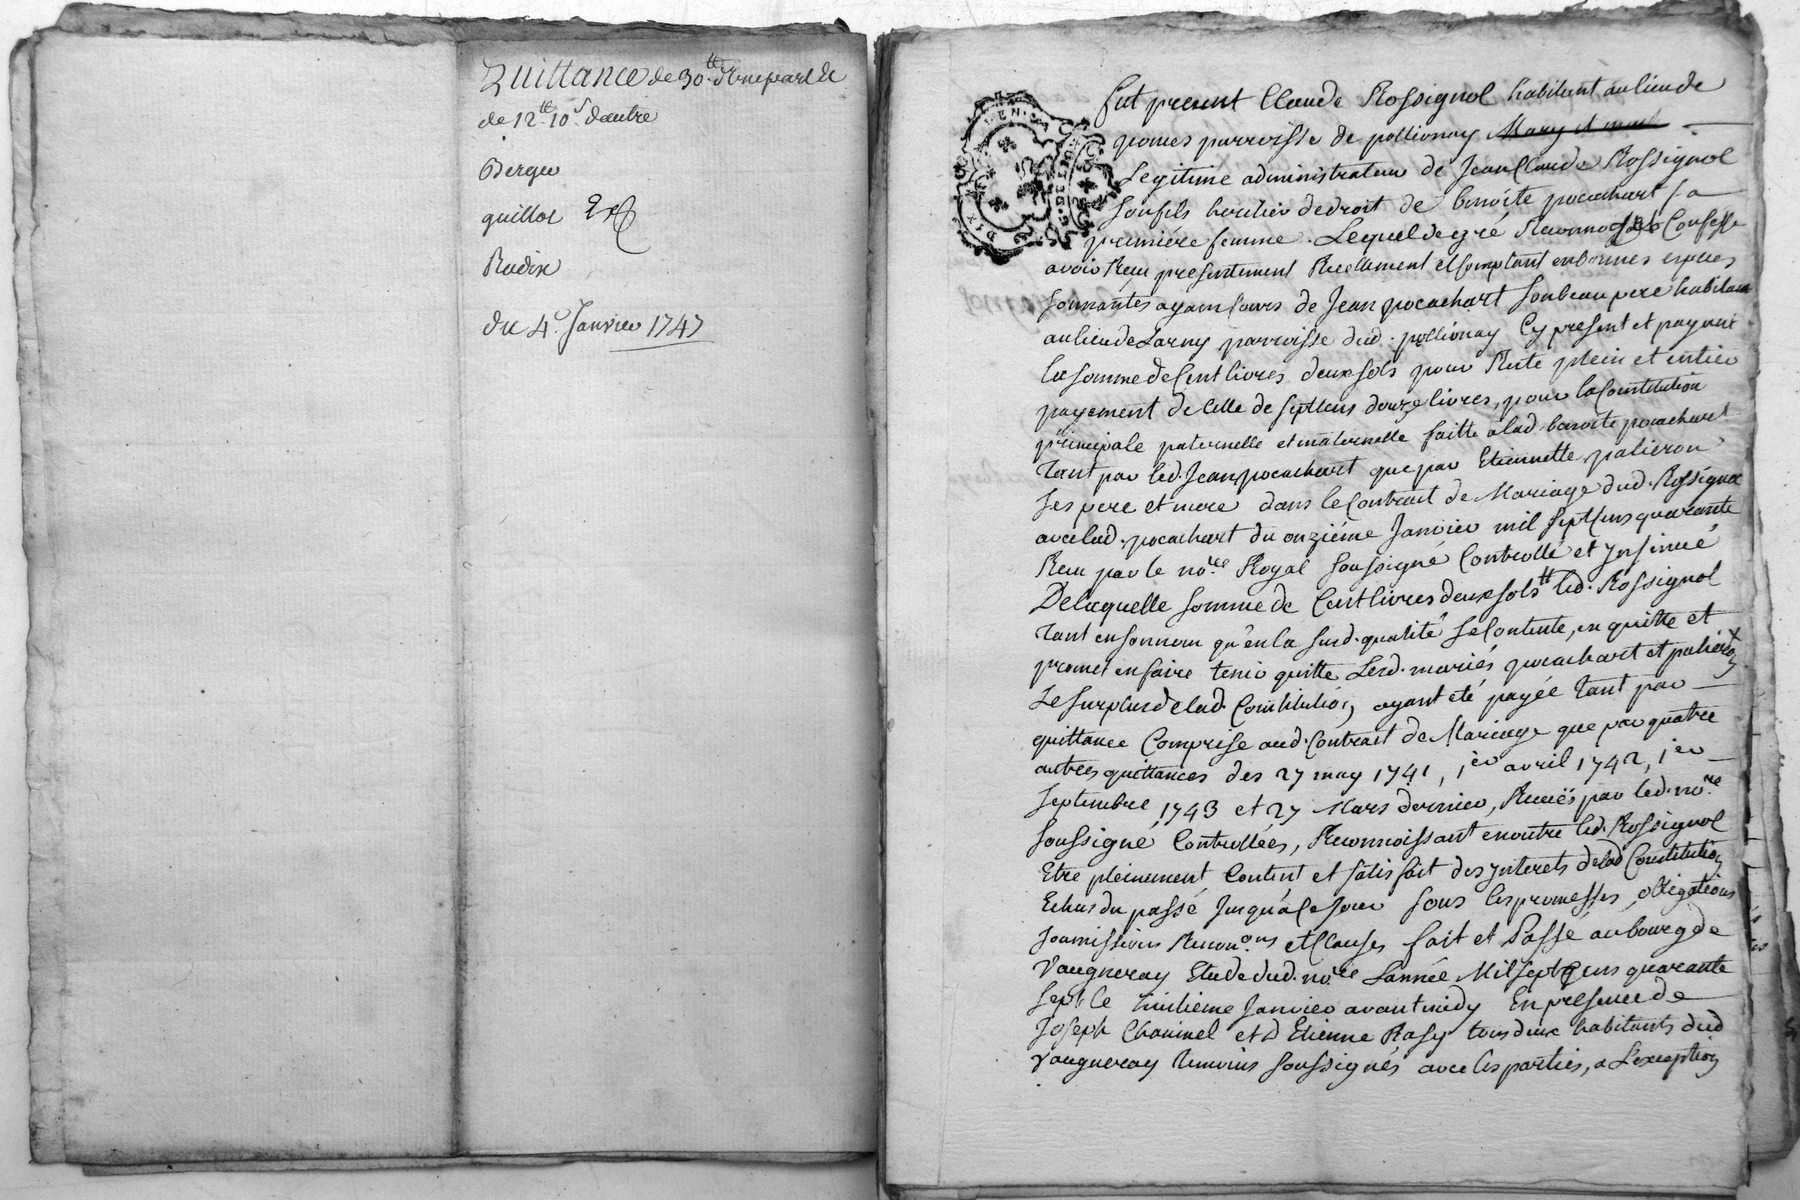 Quittance de 30.tt d'une part &c
de 12.tt 10.s d'autre
Berger
guillot
Radix
du 4.e Janvier 1747
fut present Claude Rossignol habitant au lieu de
pomes parroisse de pollionay
Legitime administrateur de Jean Claude Rossignol
son fils heritier de droit de benoite pocachart sa
premiére femme. Lequel de gré Reconnoit et Confesse
avoir Reçu presentement Reellement et Comptant en bonnes especes
sonnantes ayant Cours de Jean pocachart son beau pere habitant
au lieu de Larny parroisse dud. pollionay Cy present et payant
la somme de Cent livres deux sols pour Reste plein et entier
payement de Celle de sept Cens douze livres, pour la Constitution
principale paternelle et maternelle faitte a lad. benoite pocachart
tant par led. Jean pocachart que par Etiennette palieron
ses pere et mere dans le Contract de Mariage dud. Rossignol
avec lad. pocachart du onziéme Janvier mil sept Cens quarante
Recu par le no.re Royal soussigné Controllé et Insinué
De laquelle somme de Cent livres deux sols tt led. Rossignol
tant en son nom qu'en la susd. qualité se Contente, en quitte et
promet en faire tenir quitte Lesd. mariés pocachart et palieron
Le surplus de lad. Constitution ayant eté payée tant par
quittance Comprise aud. Contract de Mariage que par quatre
autres quittances des 27 may 1741, 1er avril 1742, 1er
septembre 1743 et 27 Mars dernier, Recuës par led. no.re
soussigné Controllées, Reconnoissant en outre led. Rossignol
Etre pleinement Content et satisfait des Interets de lad Constitution
Echus du passé Jusqu'a Ce Jour sous les promesses, obligations
soumissions Renon.ons et Clauses fait et Passé au bourg de
Vaugneray Etude dud. no.re L'année Mil sept Cens quarante
sept le huitieme Janvier avant midy En presence de
Joseph Chavinel et D Etienne Rasy tous deux habitants dud
Vaugneray temoins soussignés avec les parties, a L'exception